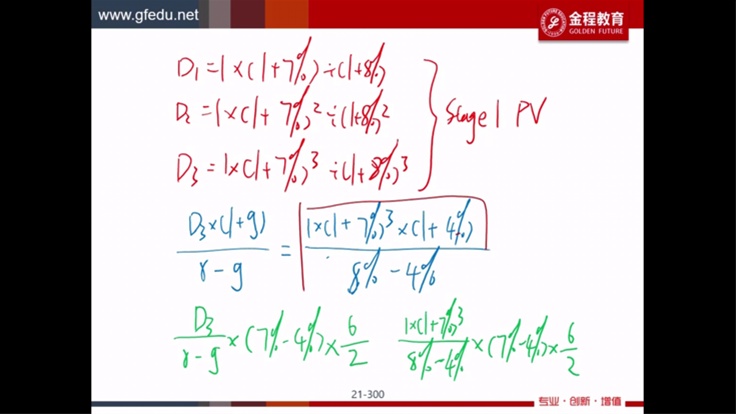 www.gfedu.net
金程教育
GOLDEN FUTURE
D₁ = 1×(1+7%) ÷ (1+8%)
D₂ = 1×(1+7%)² ÷ (1+8%)²
Stage 1 PV
D₃ = 1×(1+7%)³ ÷ (1+8%)³
D₃×(1+g) / r-g = 1×(1+7%)³×(1+4%) / 8%-4%
D₃ / r-g ×(7%-4%)× 6/2
1×(1+7%)³ / 8%-4% ×(7%-4%)× 6/2
21-300
专业·创新·增值